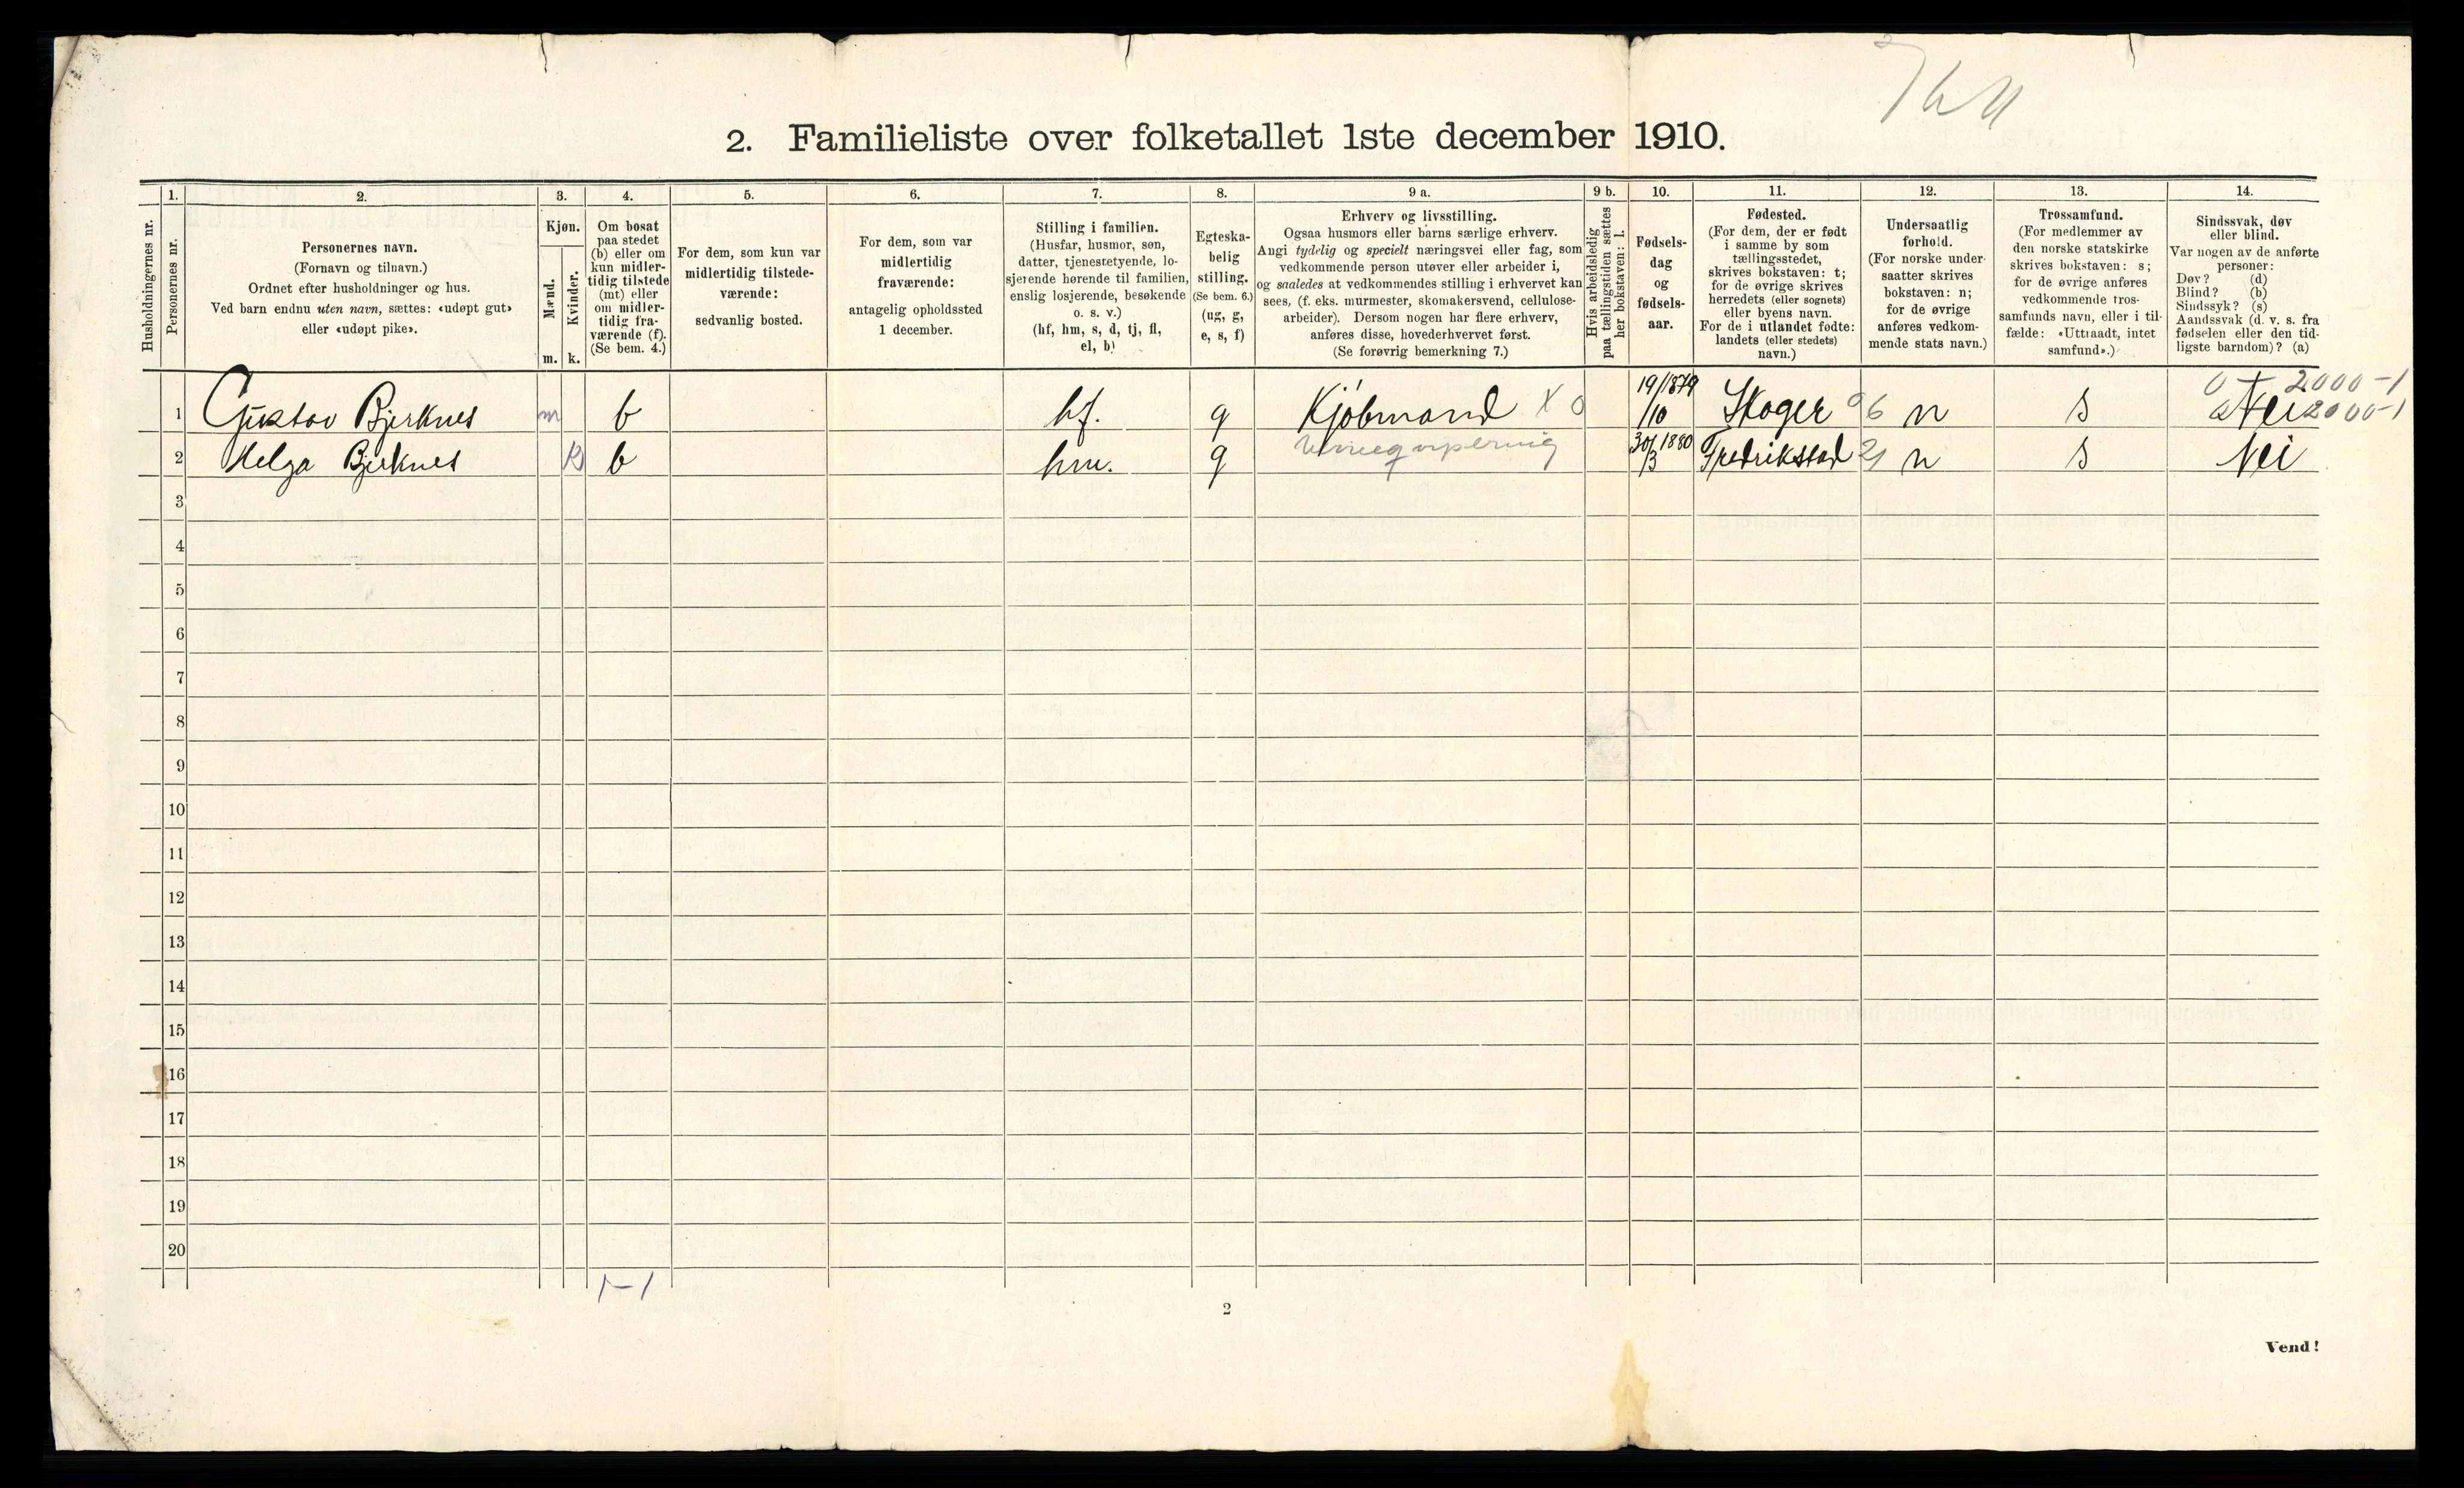 2. Familieliste over folketallet 1ste december 1910.
Husholdningernes nr.
1.
Personernes nr.
2.
Personernes navn.
(Fornavn og tilnavn.)
Ordnet efter husholdninger og hus.
Ved barn endnu uten navn, sættes: «udøpt gut»
eller «udøpt pike».
3.
Kjøn.
Mænd.
m.
Kvinder.
k.
4.
Om bosat
paa stedet
(b) eller om
kun midler-
tidig tilstede
(mt) eller
om midler-
tidig fra-
værende (f).
(Se bem. 4.)
5.
For dem, som kun var
midlertidig tilstede-
værende:
sedvanlig bosted.
6.
For dem, som var
midlertidig
fraværende:
antagelig opholdssted
1 december.
7.
Stilling i familien.
(Husfar, husmor, søn,
datter, tjenestetyende, lo-
sjerende hørende til familien,
enslig losjerende, besøkende
o. s. v.)
(hf, hm, s, d, tj, fl,
el, b)
8.
Egteska-
belig
stilling.
(Se bem. 6.)
(ug, g,
e, s, f)
9 a.
Erhverv og livsstilling.
Ogsaa husmors eller barns særlige erhverv.
Angi tydelig og specielt næringsvei eller fag, som
vedkommende person utøver eller arbeider i,
og saaledes at vedkommendes stilling i erhvervet kan
sees, (f. eks. murmester, skomakersvend, cellulose-
arbeider). Dersom nogen har flere erhverv,
anføres disse, hovederhvervet først.
(Se forøvrig bemerkning 7.)
9 b.
Hvis arbeidsledig
paa tællingstiden sættes
her bokstaven: l.
10.
Fødsels-
dag
og
fødsels-
aar.
11.
Fødested.
(For dem, der er født
i samme by som
tællingsstedet,
skrives bokstaven: t;
for de øvrige skrives
herredets (eller sognets)
eller byens navn.
For de i utlandet fødte:
landets (eller stedets)
navn.)
12.
Undersaatlig
forhold.
(For norske under-
saatter skrives
bokstaven: n;
for de øvrige
anføres vedkom-
mende stats navn.)
13.
Trossamfund.
(For medlemmer av
den norske statskirke
skrives bokstaven: s;
for de øvrige anføres
vedkommende tros-
samfunds navn, eller i til-
fælde: «Uttraadt, intet
samfund».)
14.
Sindssvak, døv
eller blind.
Var nogen av de anførte
personer:
Døv? (d)
Blind? (b)
Sindssyk? (s)
Aandssvak (d. v. s. fra
fødselen eller den tid-
ligste barndom)? (a)
1 Gustav Bjerknes m b hf. g Kjøbmand X 0 19/10 1879 Skoger 06 n s Nei 2000-1
2000-1
2 Helga Bjerknes k b hm. g 30/3 1880 Fredrikstad 21 n s Nei
3
4
5
6
7
8
9
10
11
12
13
14
15
16
17
18
19
20
1-1
2
Vend!